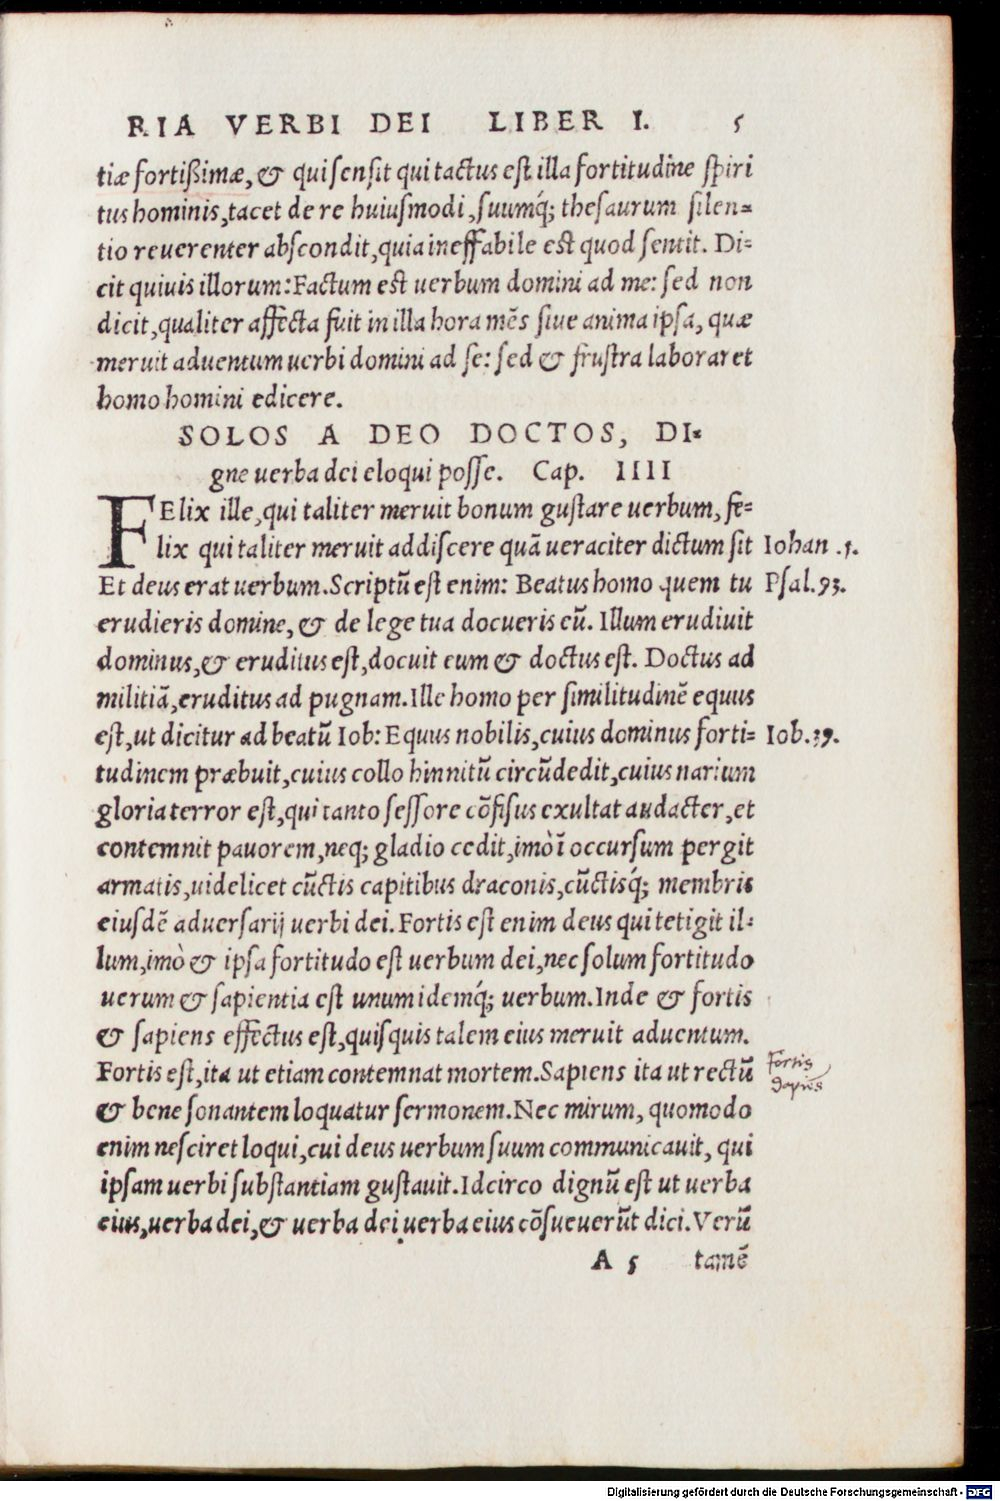 RIA VERBI DEI LIBER I. 5
tiæ fortißimæ, & qui sensit qui tactus est illa fortitudine spiri
tus hominis, tacet de re huiusmodi, suumq́; thesaurum silen=
tio reuerenter abscondit, quia ineffabile est quod sentit. Di=
cit quiuis illorum: Factum est uerbum domini ad me: sed non
dicit, qualiter affecta fuit in illa hora mēs siue anima ipsa, quæ
meruit aduentum uerbi domini ad se: sed & frustra laboraret
homo homini edicere.
SOLOS A DEO DOCTOS, DI=
gne uerba dei eloqui posse. Cap. IIII
FElix ille, qui taliter meruit bonum gustare uerbum, fe=
lix qui taliter meruit addiscere quā ueraciter dictum sit Iohan .1.
Et deus erat uerbum. Scriptū est enim: Beatus homo quem tu Psal.93.
erudieris domine, & de lege tua docueris eū. Illum erudiuit
dominus, & eruditus est, docuit eum & doctus est. Doctus ad
militiā, eruditus ad pugnam. Ille homo per similitudinē equus
est, ut dicitur ad beatū Iob: Equus nobilis, cuius dominus forti= Iob.39.
tudinem præbuit, cuius collo hinnitū circūdedit, cuius narium
gloria terror est, qui tanto sessore cōfisus exultat audacter, et
contemnit pauorem, neq; gladio cedit, imò ī occursum pergit
armatis, uidelicet cūctis capitibus draconis, cūctisq́; membris
eiusdē aduersarij uerbi dei. Fortis est enim deus qui tetigit il=
lum, imò & ipsa fortitudo est uerbum dei, nec solum fortitudo
uerum & sapientia est unum idemq́; uerbum. Inde & fortis
& sapiens effectus est, quisquis talem eius meruit aduentum.
Fortis est, ita ut etiam contemnat mortem. Sapiens ita ut rectū Fortis
& bene sonantem loquatur sermonem. Nec mirum, quomodo
enim nesciret loqui, cui deus uerbum suum communicauit, qui
ipsam uerbi substantiam gustauit. Idcirco dignū est ut uerba
eius, uerba dei, & uerba dei uerba eius cōsueuerūt dici. Verū
A 5 tamē
Digitalisierung gefördert durch die Deutsche Forschungsgemeinschaft - DFG